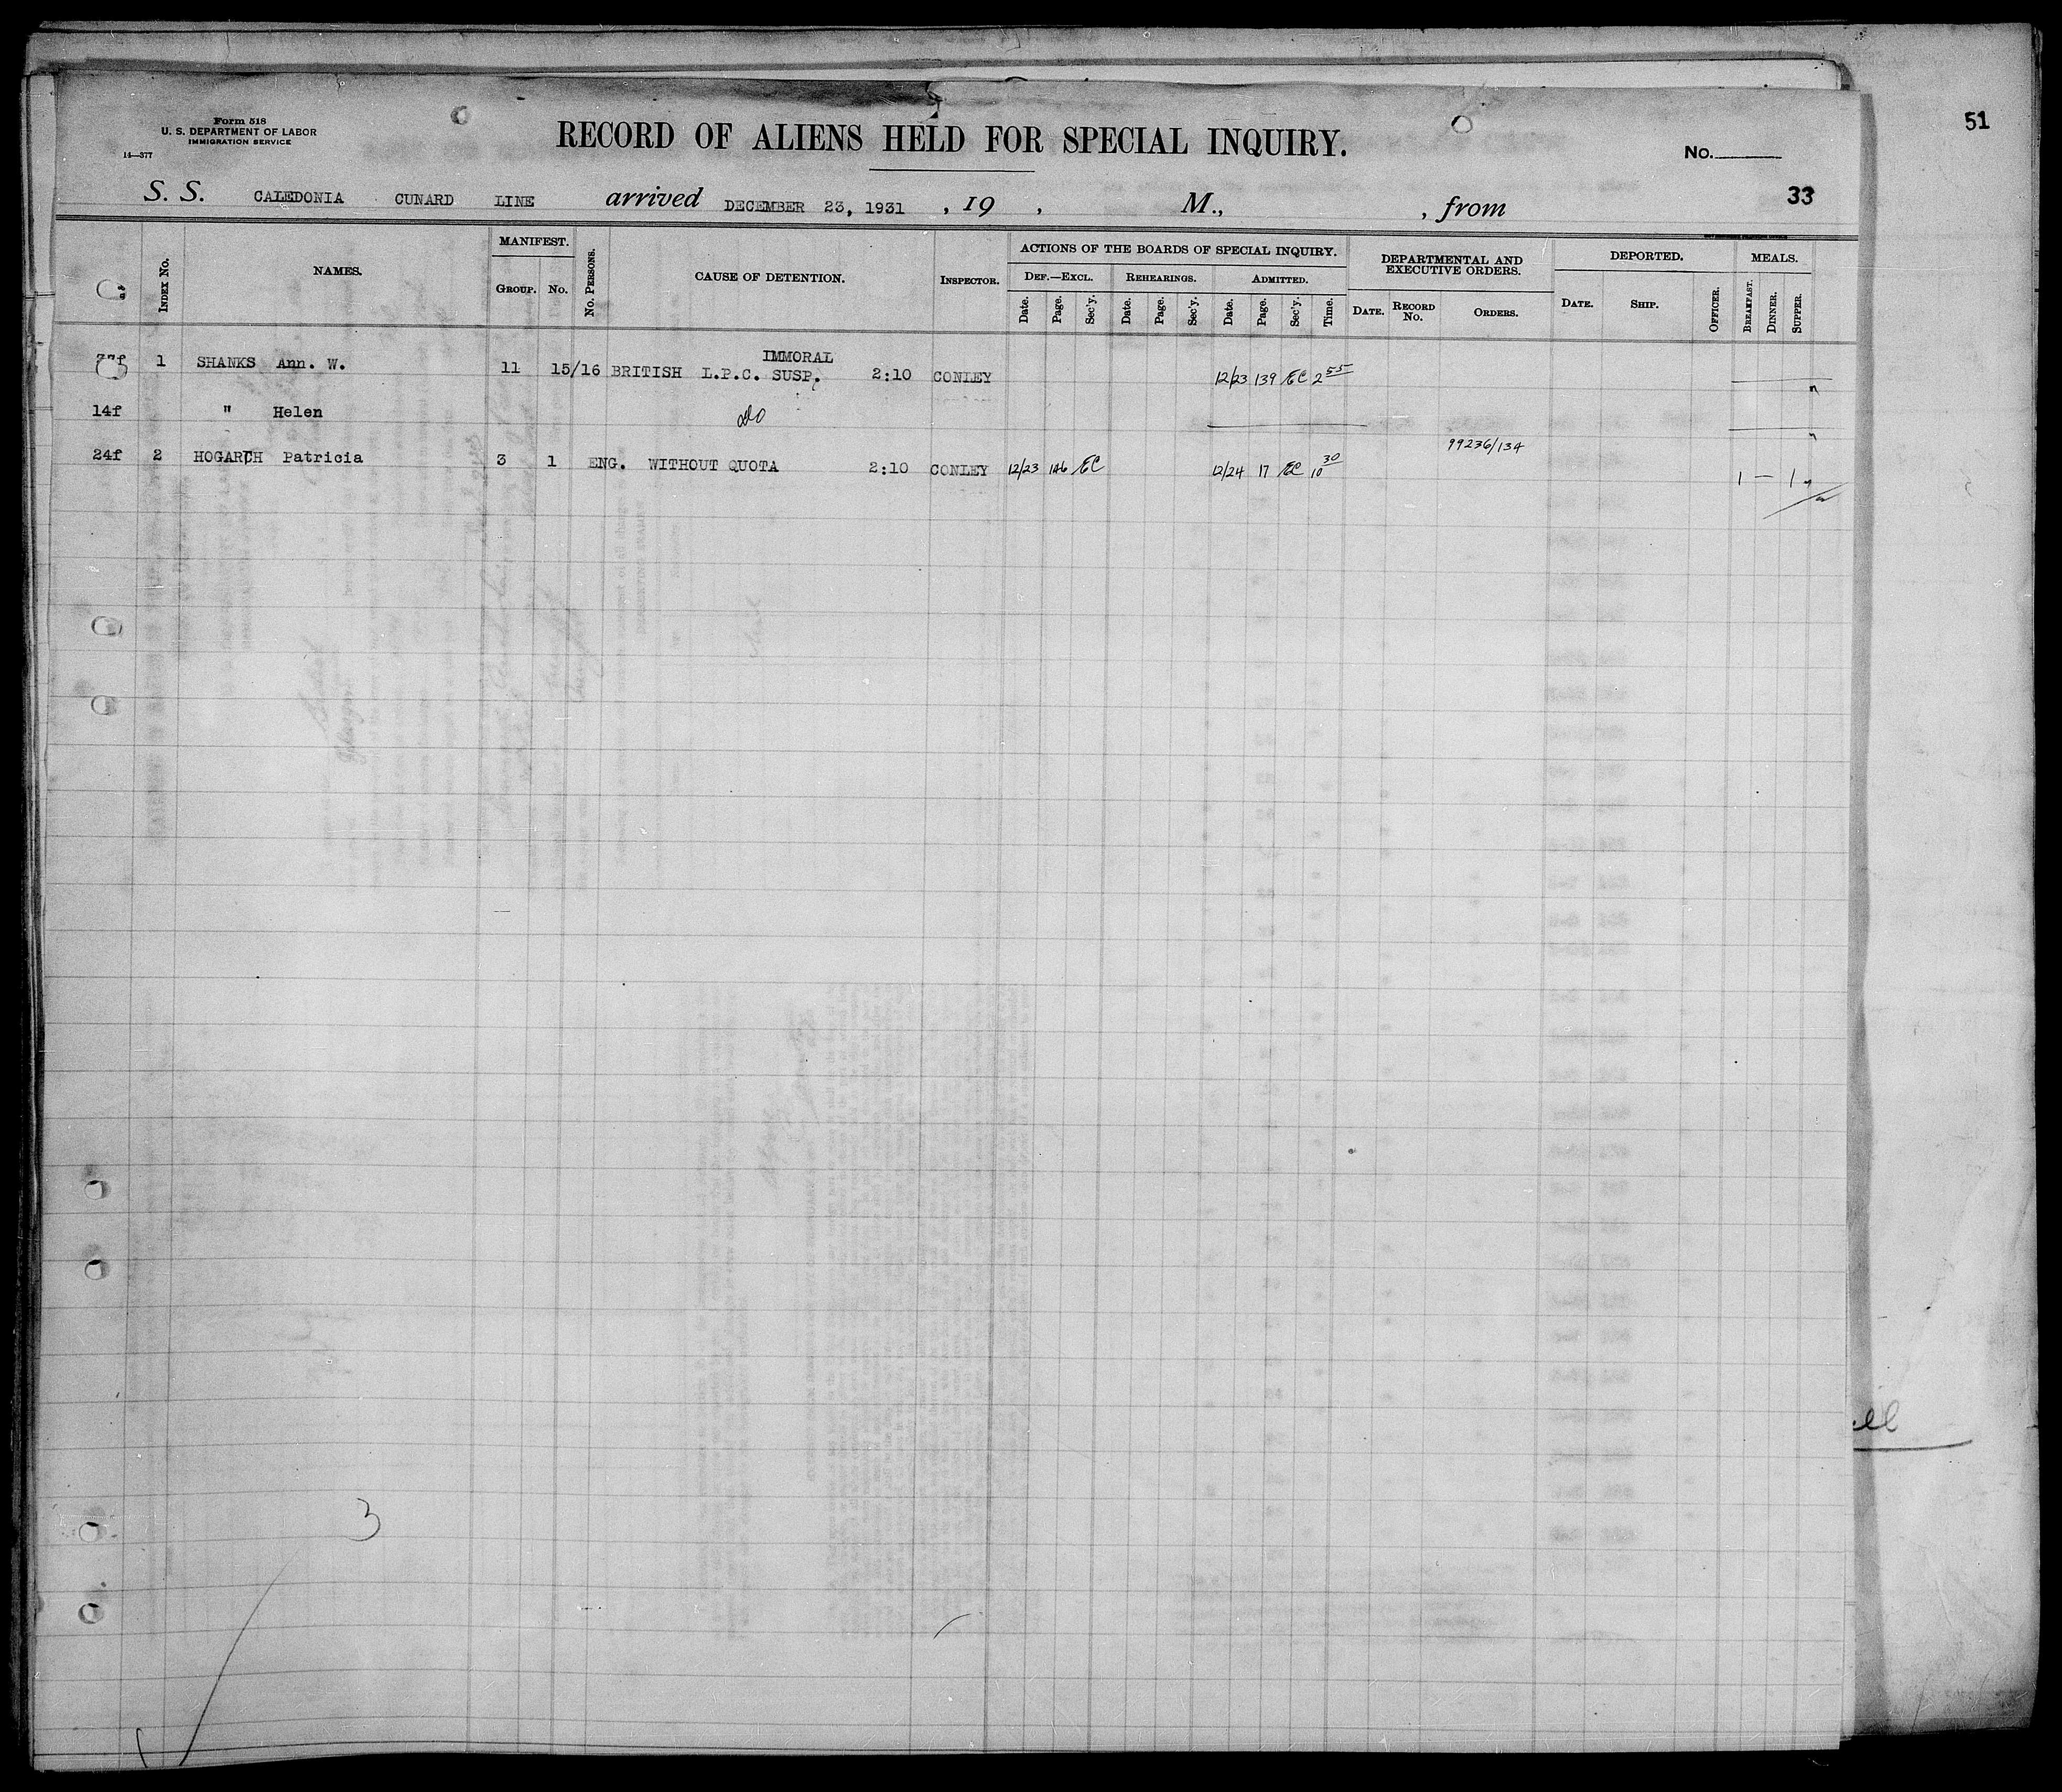 51
Form 518
U. S. DEPARTMENT OF LABOR
IMMIGRATION SERVICE
14—377
RECORD OF ALIENS HELD FOR SPECIAL INQUIRY.
No.
33
S. S. CALEDONIA CUNARD LINE arrived DECEMBER 23, 1931 , 19 , M., , from
INDEX No. NAMES. MANIFEST. GROUP. No. No. PERSONS. CAUSE OF DETENTION. INSPECTOR. ACTIONS OF THE BOARDS OF SPECIAL INQUIRY. DEPARTMENTAL AND EXECUTIVE ORDERS. DEPORTED. MEALS.
DEF.—EXCL. REHEARINGS. ADMITTED.
Date. Page. Sec'y. Date. Page. Sec'y. Date. Page. Sec'y. Time. DATE. RECORD No. ORDERS. DATE. SHIP. OFFICER. BREAKFAST. DINNER. SUPPER.
1 SHANKS Ann. W. 11 15/16 BRITISH L.P.C. IMMORAL SUSP. 2:10 CONLEY 12/23 139 EC 2 55
14f " Helen do
99236/134
24f 2 HOGARTH Patricia 3 1 ENG. WITHOUT QUOTA 2:10 CONLEY 12/23 146 EC 12/24 17 EC 10 30 1 — 1
3